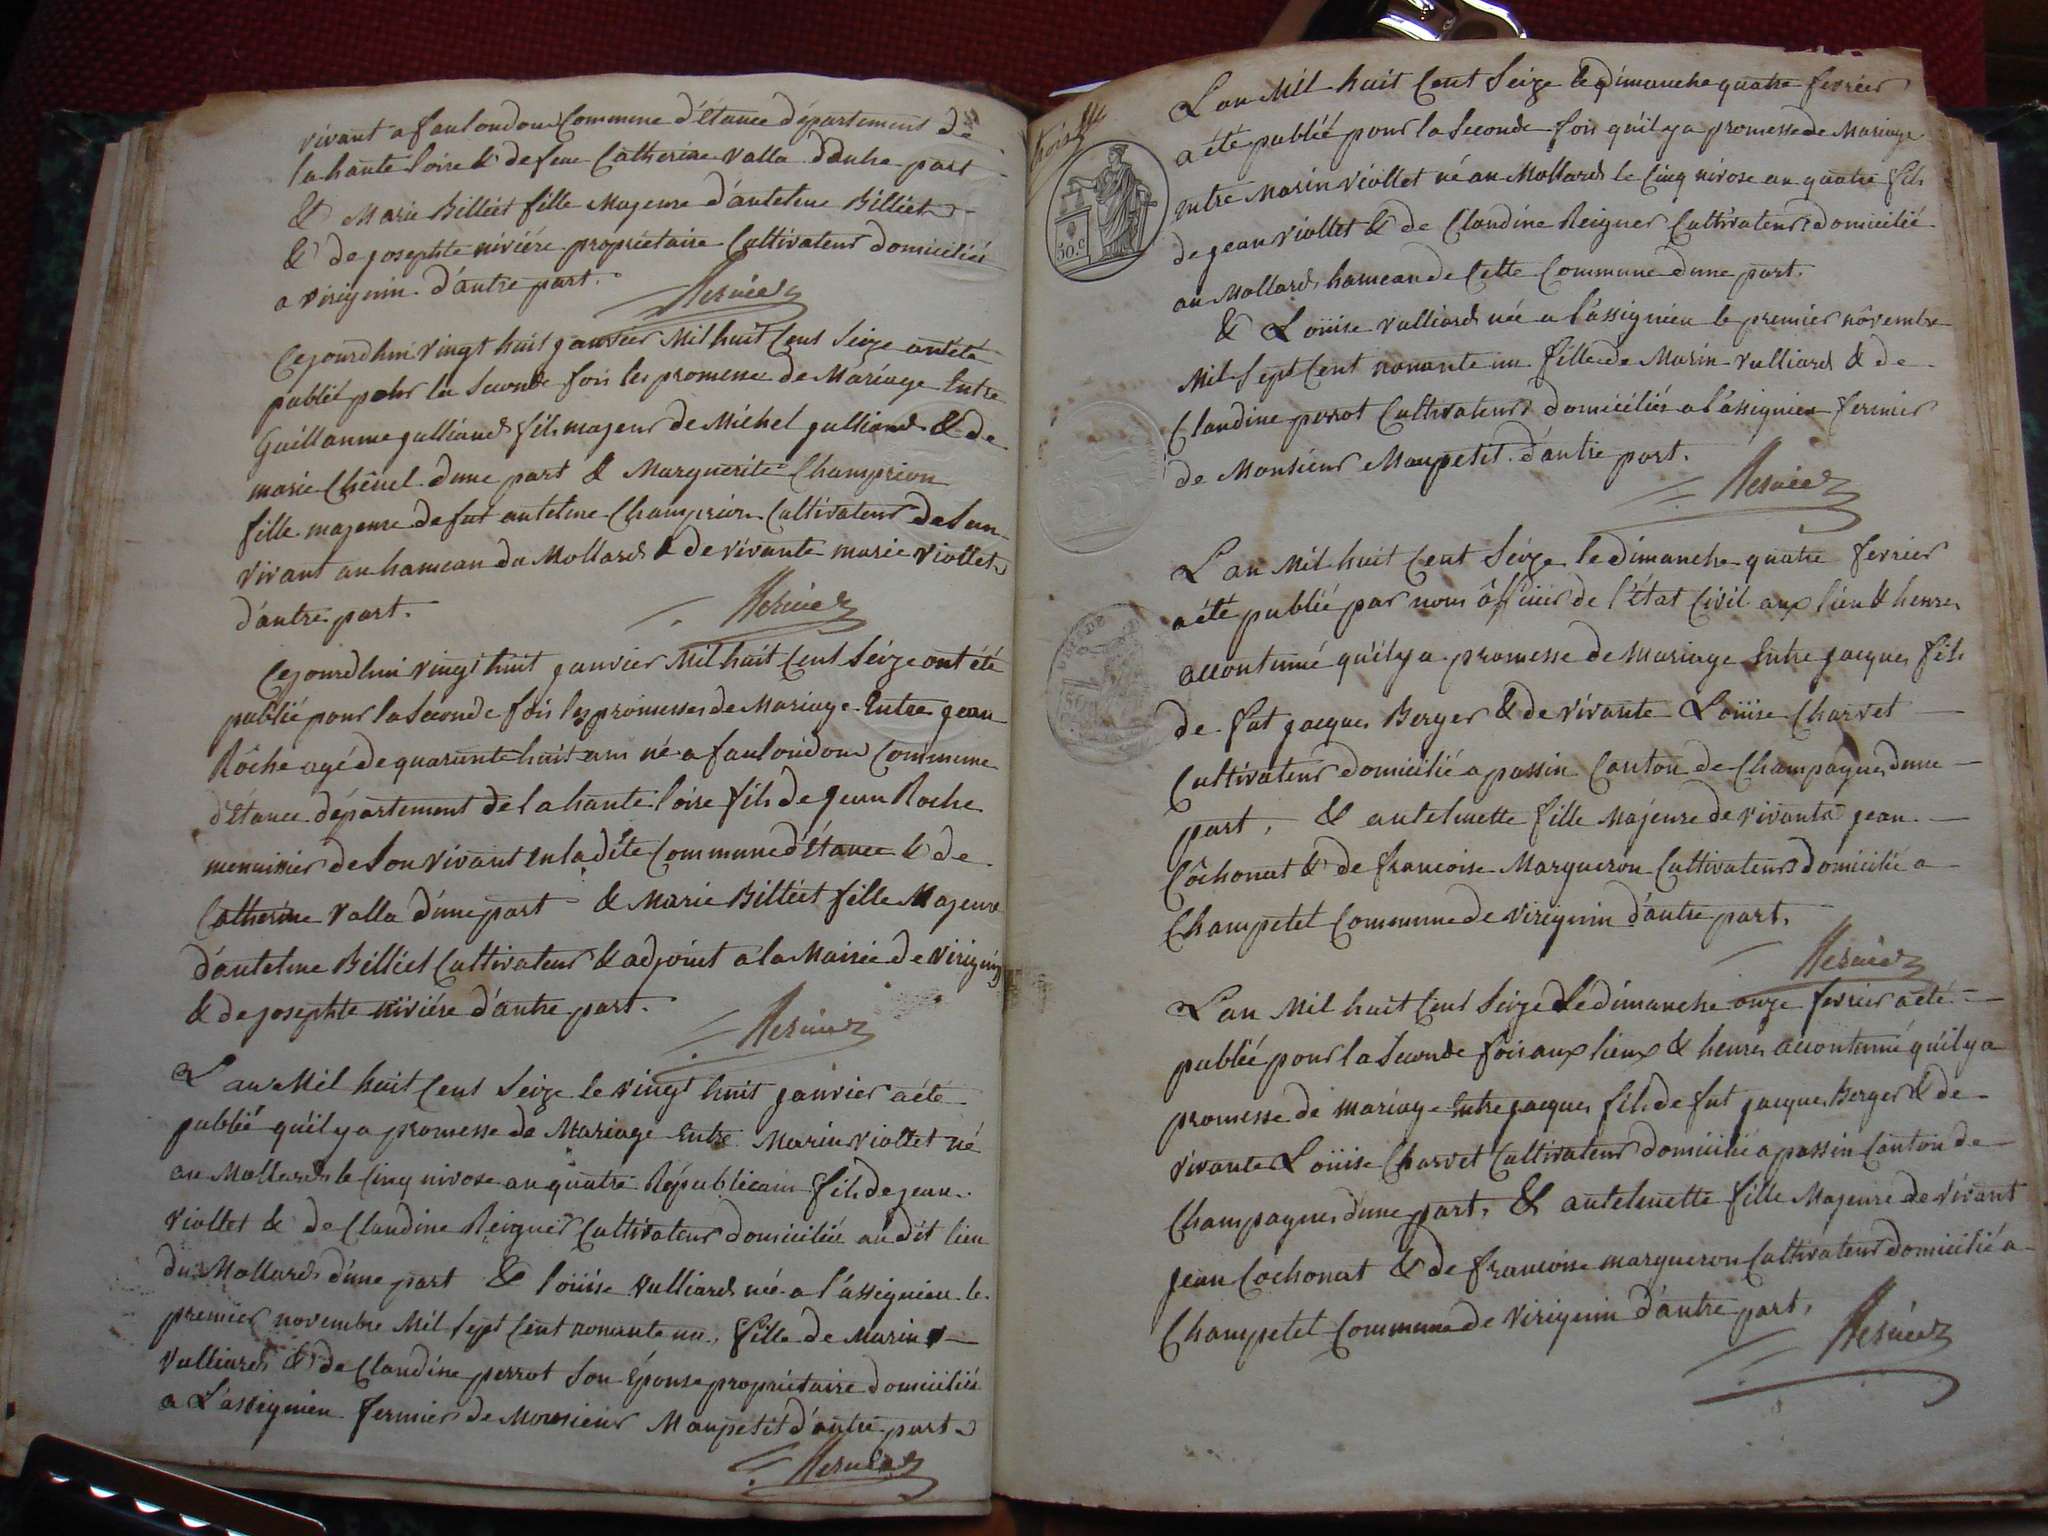 vivant a fauloudoux Commune d'Etance département de
la haute loire & de feue Catherine Valla d'autre part
& Marie Billiet fille Majeure d'antelme Billiet
& de josephte riviére propriétaire Cultivateur domiciliés
a virignin d'autre part.
Cejourdhui vingt huit janvier Mil huit Cent Seize ont été
publié pour la Seconde fois les promesse de Mariage Entre
Guillaume julliand fils majeur de Michel julliand & de
marie Chênel dune part & Marguerite Champrion
fille majeure de fut antelme Champrion Cultivateur de Son
vivant au hameau du Mollard & de vivante marie viollet
d'autre part.
Cejourdhui vingt huit janvier Mil huit Cent Seize ont été
publié pour la Seconde fois les promesses de Mariage Entre jean
Rôche agé de quarante huit ans né a fauloudoux Commune
d'Etance département de la haute loire fils de jean Roche
menuisier de Son vivant En ladite Commune d'Etance & de
Catherine Valla d'une part & Marie Billiet fille Majeure
d'antelme Billiet Cultivateur & adjoint a la Mairie de virignin
& de josephte riviére d'autre part.
L'an Mil huit Cent Seize le vingt huit janvier a été
publié qu'il y a promesse de Mariage Entre Marin viollet né
au Mollard le Cinq nivose an quatre Républicain fils de jean
viollet & de Claudine Reigner Cultivateur domicilié au dit lieu
du Mollard d'une part & loüise Vulliard née a l'assignieu le
premier novembre Mil Sept Cent nonante un, fille de Marin
Vulliard & de Claudine perrot Son Épouse propriétaire domiciliés
a L'assignieu fermier de Monsieur Maupetit d'autre part
trois
50.c
L'an Mil huit Cent Seize le dimanche quatre fevrier
a été publié pour la Seconde fois qu'il y a promesse de Mariage
Entre Marin viollet né au Mollard le Cinq nivose an quatre fils
de jean viollet & de Claudine Reigner Cultivateur domicilié
au Mollard hameau de Cette Commune dune part.
& Loüise vulliard née a l'assignieu le premier nôvembre
Mil Sept Cent nonante un fille de Marin Vulliard & de
Claudine perrot Cultivateurs domiciliés a l'assignieu fermier
de Monsieur Maupetit d'autre part.
L'an Mil huit Cent Seize le dimanche quatre fevrier
a été publié par nous ôfficier de l'état Civil aux lieu & heures
accoutumé qu'il y a promesse de Mariage Entre jacques fils
de fut jacques Berger & de vivante Loüise Charvet
Cultivateur domicilié a passin Canton de Champagnes dune
part, & antelmette fille Majeure de vivants jean
Côchonat & de francoise Margueron Cultivateurs domicilié a
Champetel Commune de virignin d'autre part.
L'an Mil huit Cent Seize le dimanche onze fevrier a été
publié pour la Seconde fois aux lieux & heures accoutumé qu'il y a
promesse de mariage Entre jacques fils de fut jacques Berger & de
vivante Loüise Charvet Cultivateur domicilié a passin Canton de
Champagnes dune part. & antelmette fille Majeure de vivant
jean Cochonat & de francoise margueron Cultivateur domicilié a
Champetel Commune de virignin d'autre part.